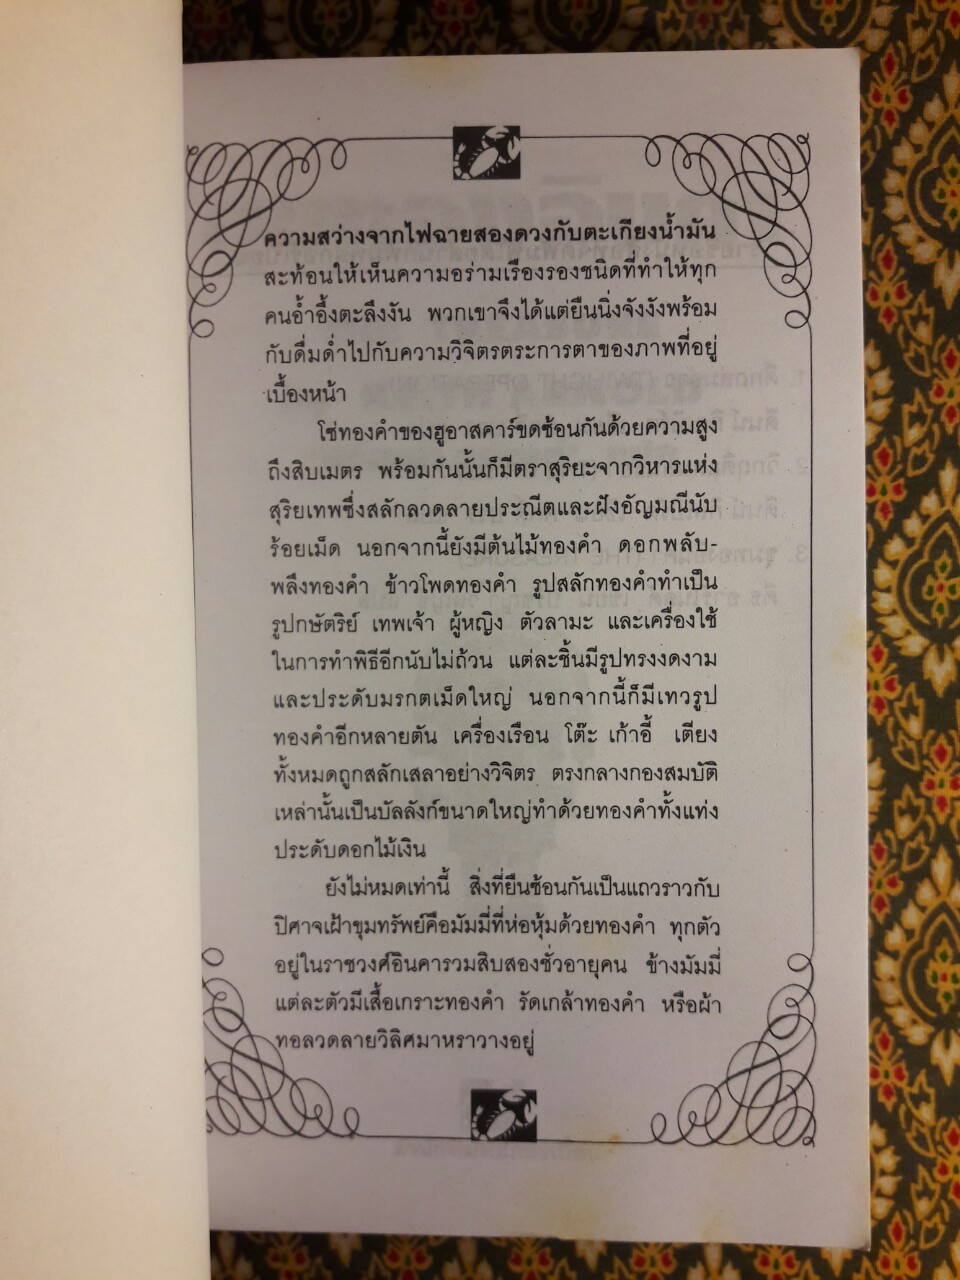 ความสว่างจากไฟฉายสองดวงกับตะเกียงน้ำมัน
สะท้อนให้เห็นความอร่ามเรืองรองชนิดที่ทำให้ทุก
คนอ้ำอึ้งตะลึงงัน พวกเขาจึงได้แต่ยืนนิ่งจังงังพร้อม
กับดื่มด่ำไปกับความวิจิตรตระการตาของภาพที่อยู่
เบื้องหน้า
โซ่ทองคำของฮูอาสคาร์ขดซ้อนกันด้วยความสูง
ถึงสิบเมตร พร้อมกันนั้นก็มีตราสุริยะจากวิหารแห่ง
สุริยเทพซึ่งสลักลวดลายประณีตและฝังอัญมณีนับ
ร้อยเม็ด นอกจากนี้ยังมีต้นไม้ทองคำ ดอกพลับ-
พลึงทองคำ ข้าวโพดทองคำ รูปสลักทองคำทำเป็น
รูปกษัตริย์ เทพเจ้า ผู้หญิง ตัวลามะ และเครื่องใช้
ในการทำพิธีอีกนับไม่ถ้วน แต่ละชิ้นมีรูปทรงงดงาม
และประดับมรกตเม็ดใหญ่ นอกจากนี้ก็มีเทวรูป
ทองคำอีกหลายตัน เครื่องเรือน โต๊ะ เก้าอี้ เตียง
ทั้งหมดถูกสลักเสลาอย่างวิจิตร ตรงกลางกองสมบัติ
เหล่านั้นเป็นบัลลังก์ขนาดใหญ่ทำด้วยทองคำทั้งแท่ง
ประดับดอกไม้เงิน
ยังไม่หมดเท่านี้ สิ่งที่ยืนซ้อนกันเป็นแถวราวกับ
ปิศาจเฝ้าขุมทรัพย์คือมัมมี่ที่ห่อหุ้มด้วยทองคำ ทุกตัว
อยู่ในราชวงศ์อินคารวมสิบสองชั่วอายุคน ข้างมัมมี่
แต่ละตัวมีเสื้อเกราะทองคำ รัดเกล้าทองคำ หรือผ้า
ทอลวดลายวิลิศมาหราวางอยู่